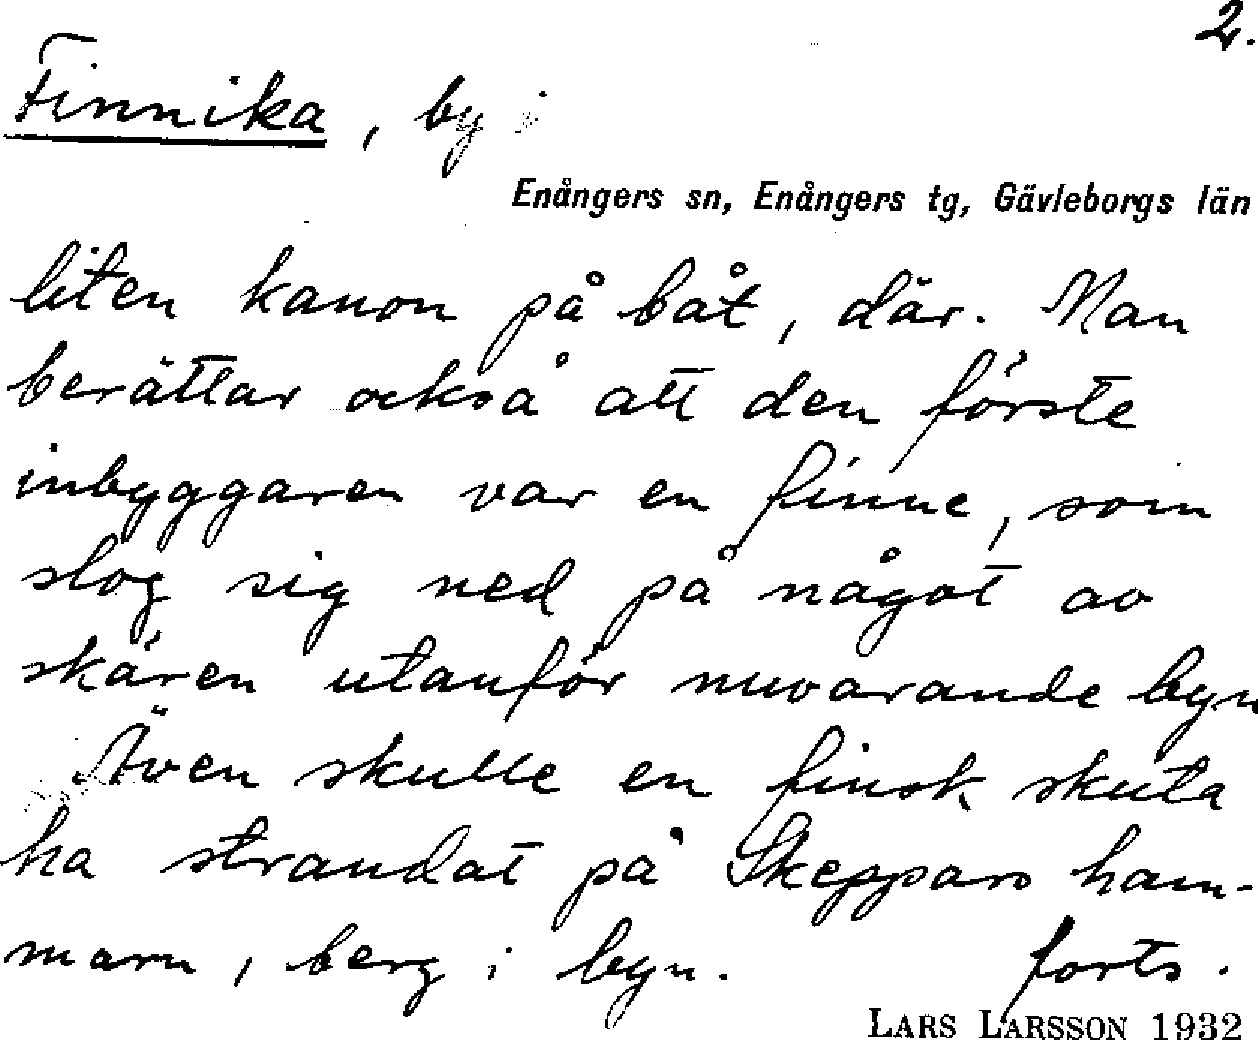 2.
Finnika, by i
Enångers sn, Enångers tg, Gävleborgs län
liten kanon på båt, där. Man
berättar också att den förste
inbyggaren var en finne, som
slog sig ned på något av
skären utanför nuvarande byn
Även skulle en finsk skuta
ha strandat på Skeppars ham-
marn, berg i byn. forts.
LARS LARSSON 1932